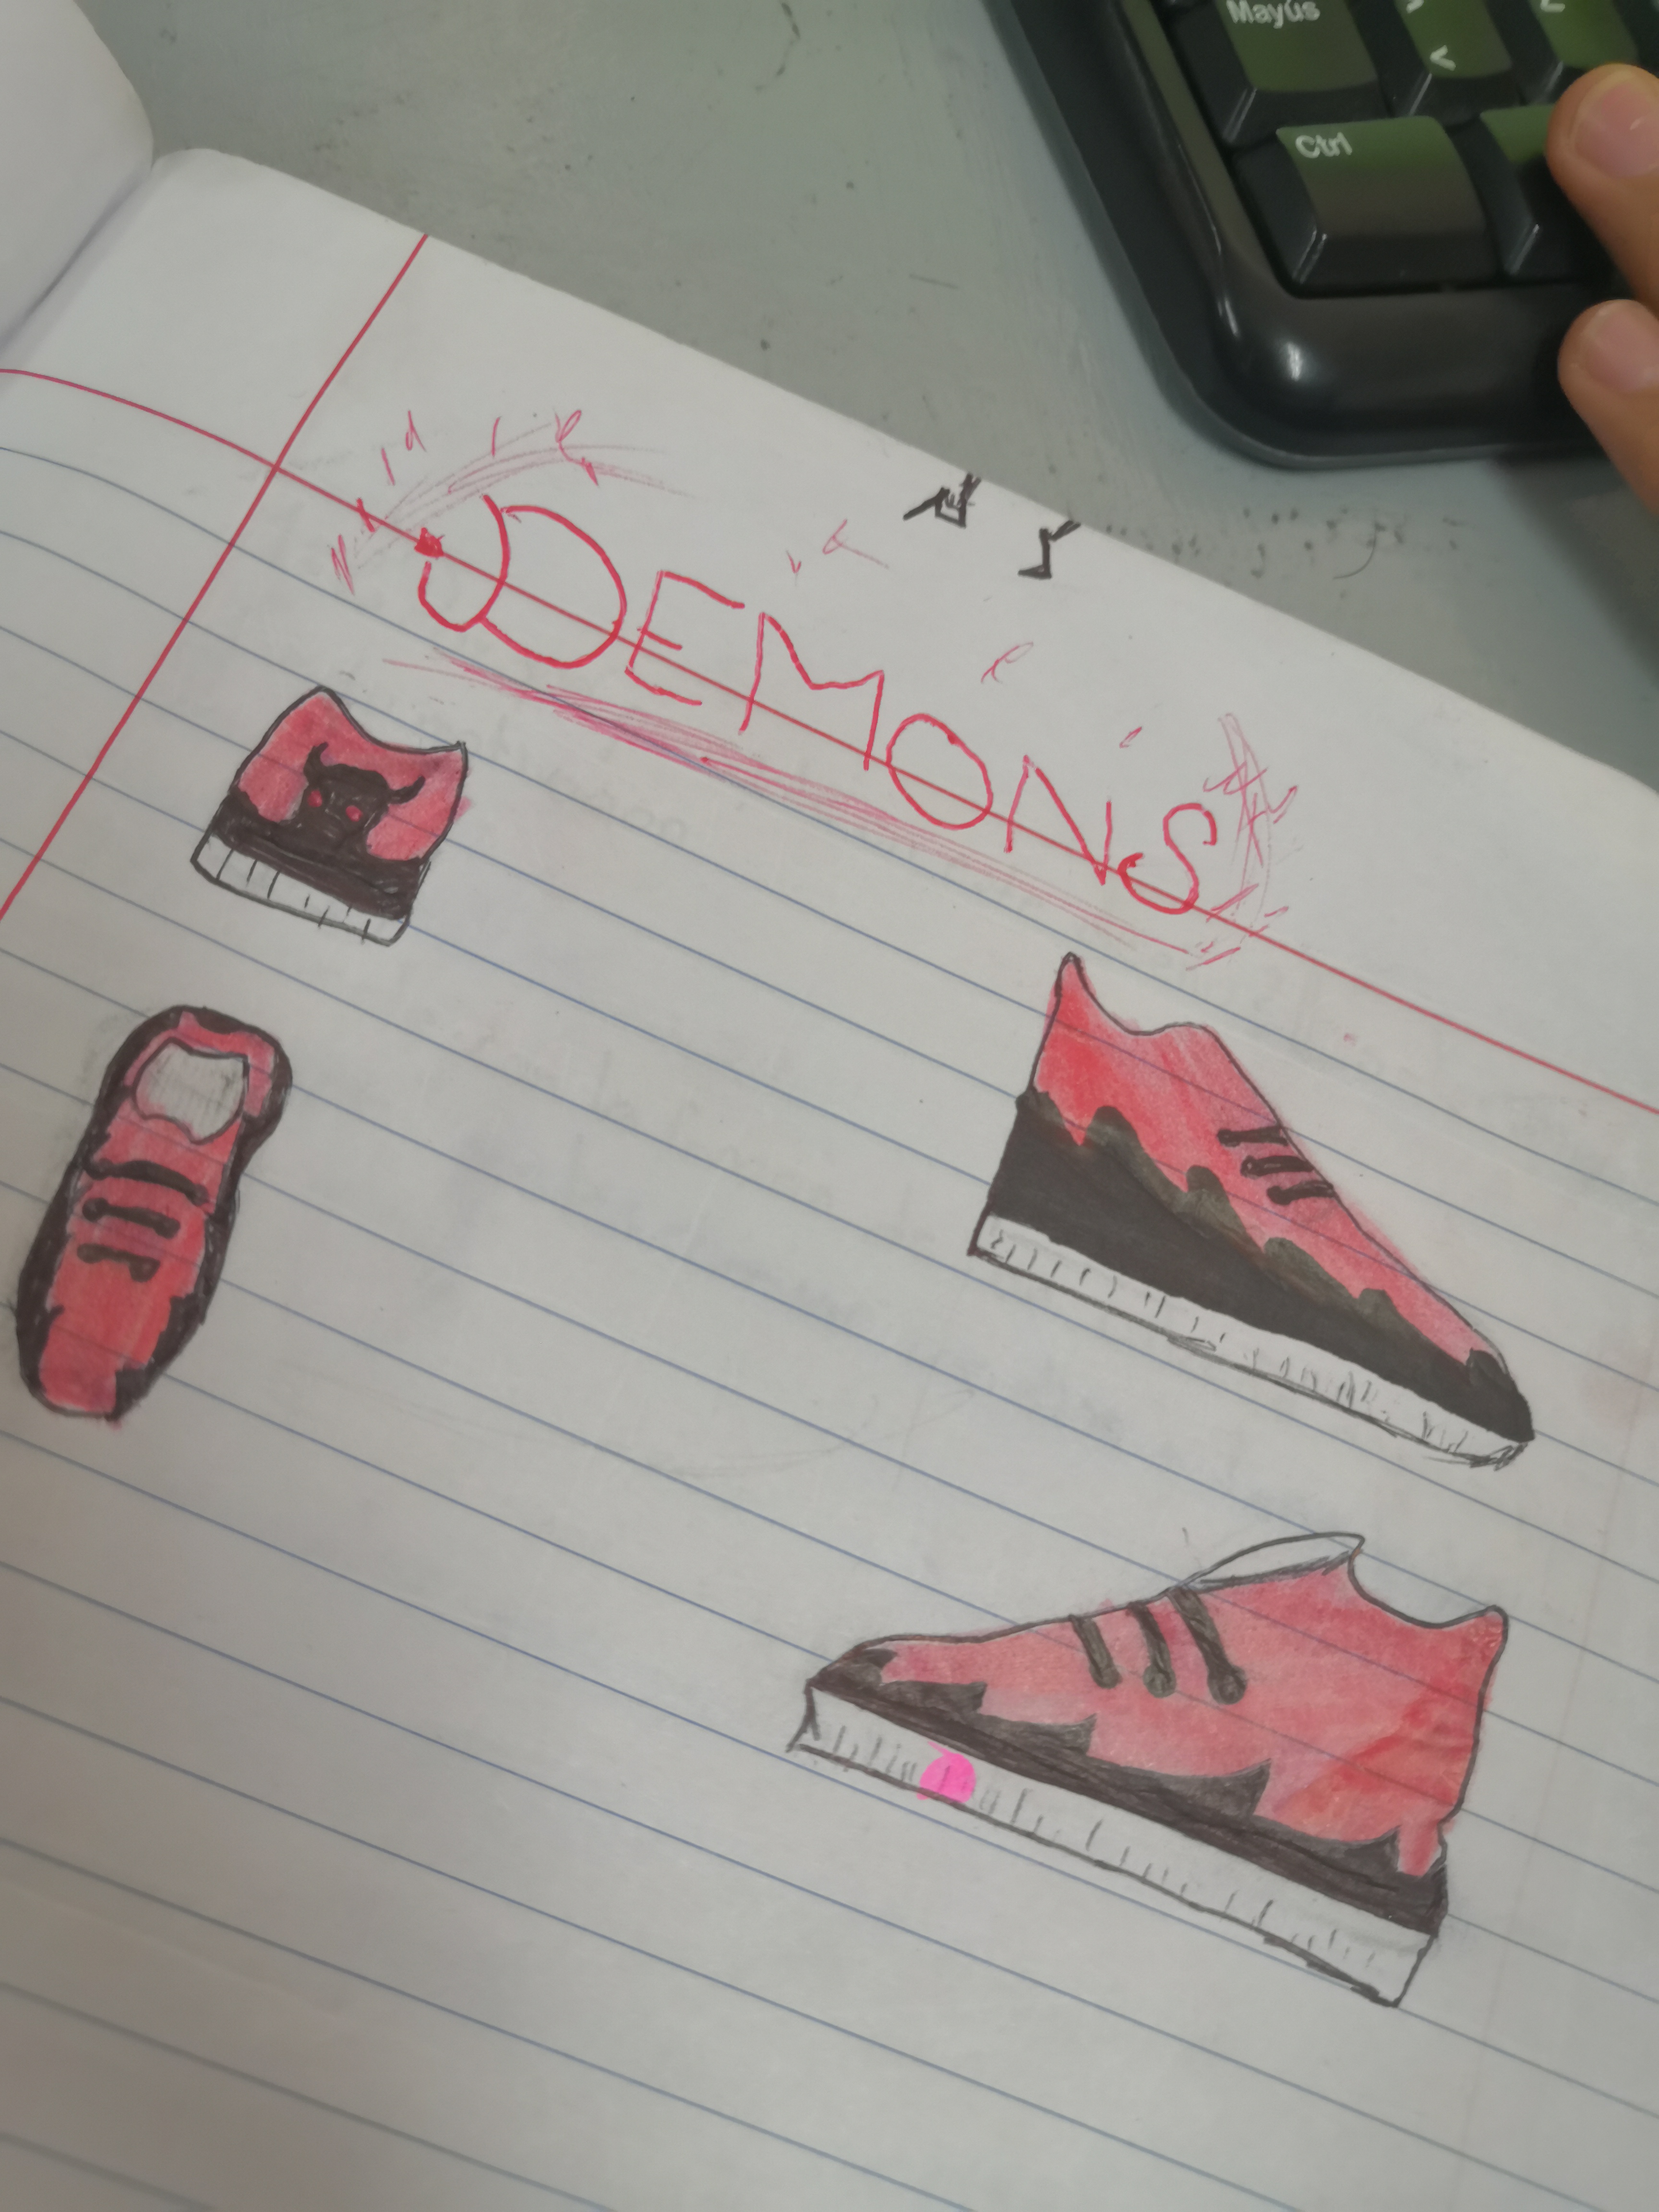 Mayús
Ctrl
DEMONS